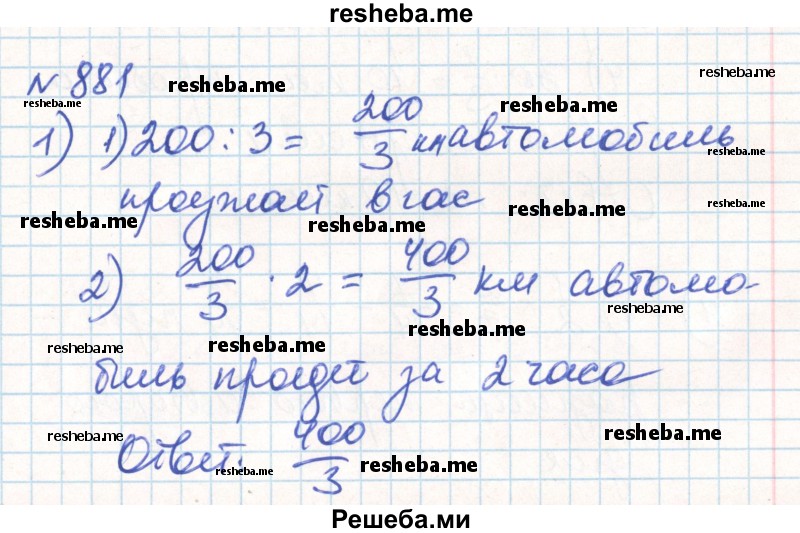 resheba.me
N 881 resheba.me resheba.me
resheba.me resheba.me
1) 1) 200 : 3 = 200/3 км автомобиль
resheba.me
проезжает в час
resheba.me resheba.me resheba.me resheba.me
2) 200/3 · 2 = 400/3 км автомо-
resheba.me
resheba.me
resheba.me resheba.me resheba.me
биль проедет за 2 часа
resheba.me resheba.me
Ответ: 400/3
resheba.me resheba.me
Решеба.ми